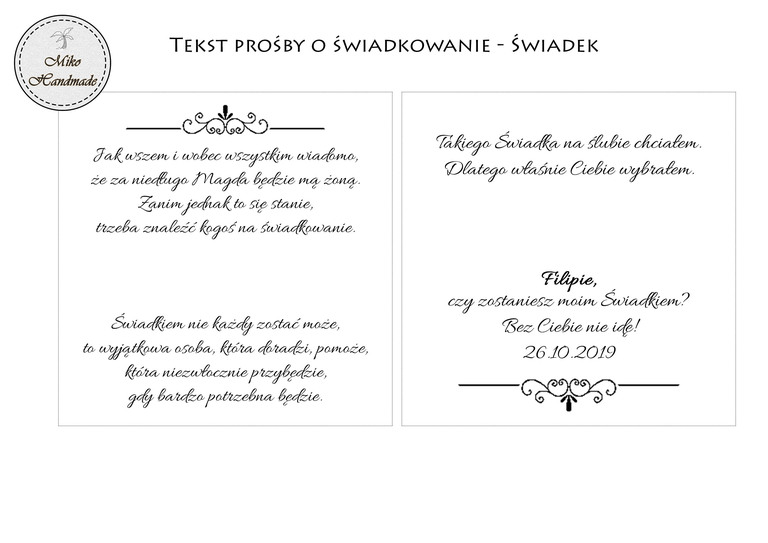 Miko
Handmade
Tekst prośby o świadkowanie - Świadek
Jak wszem i wobec wszystkim wiadomo,
że za niedługo Magda będzie mą żoną.
Zanim jednak to się stanie,
trzeba znaleźć kogoś na świadkowanie.
Świadkiem nie każdy zostać może,
to wyjątkowa osoba, która doradzi, pomoże,
która niezwłocznie przybędzie,
gdy bardzo potrzebna będzie.
Takiego Świadka na ślubie chciałem.
Dlatego właśnie Ciebie wybrałem.
Filipie,
czy zostaniesz moim Świadkiem?
Bez Ciebie nie idę!
26.10.2019